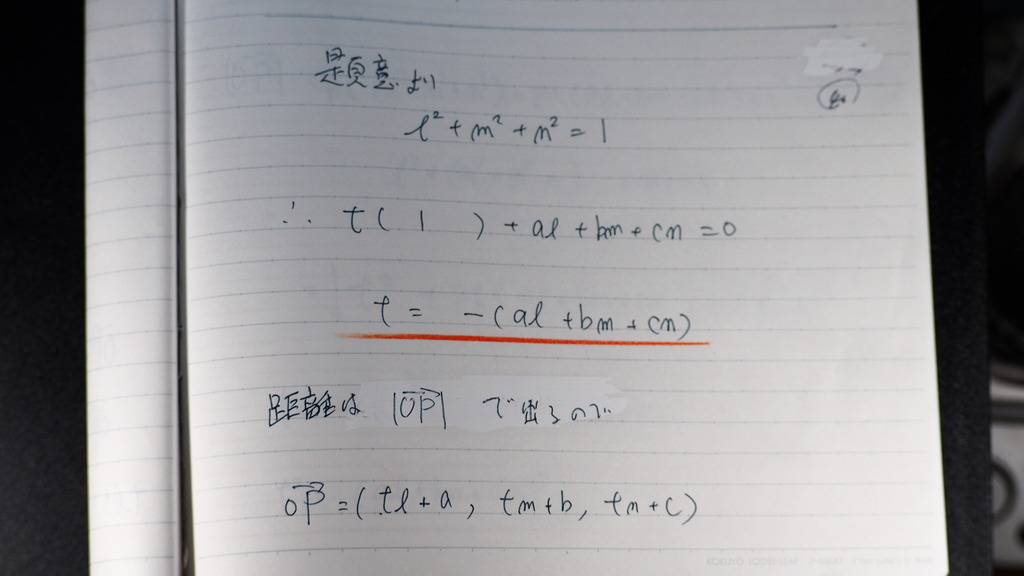 題意より
l² + m² + n² = 1
∴ t( 1 ) + al + bm + cn = 0
t = -(al + bm + cn)
距離は |OP| で出るので
OP = (tl + a, tm + b, tn + c)